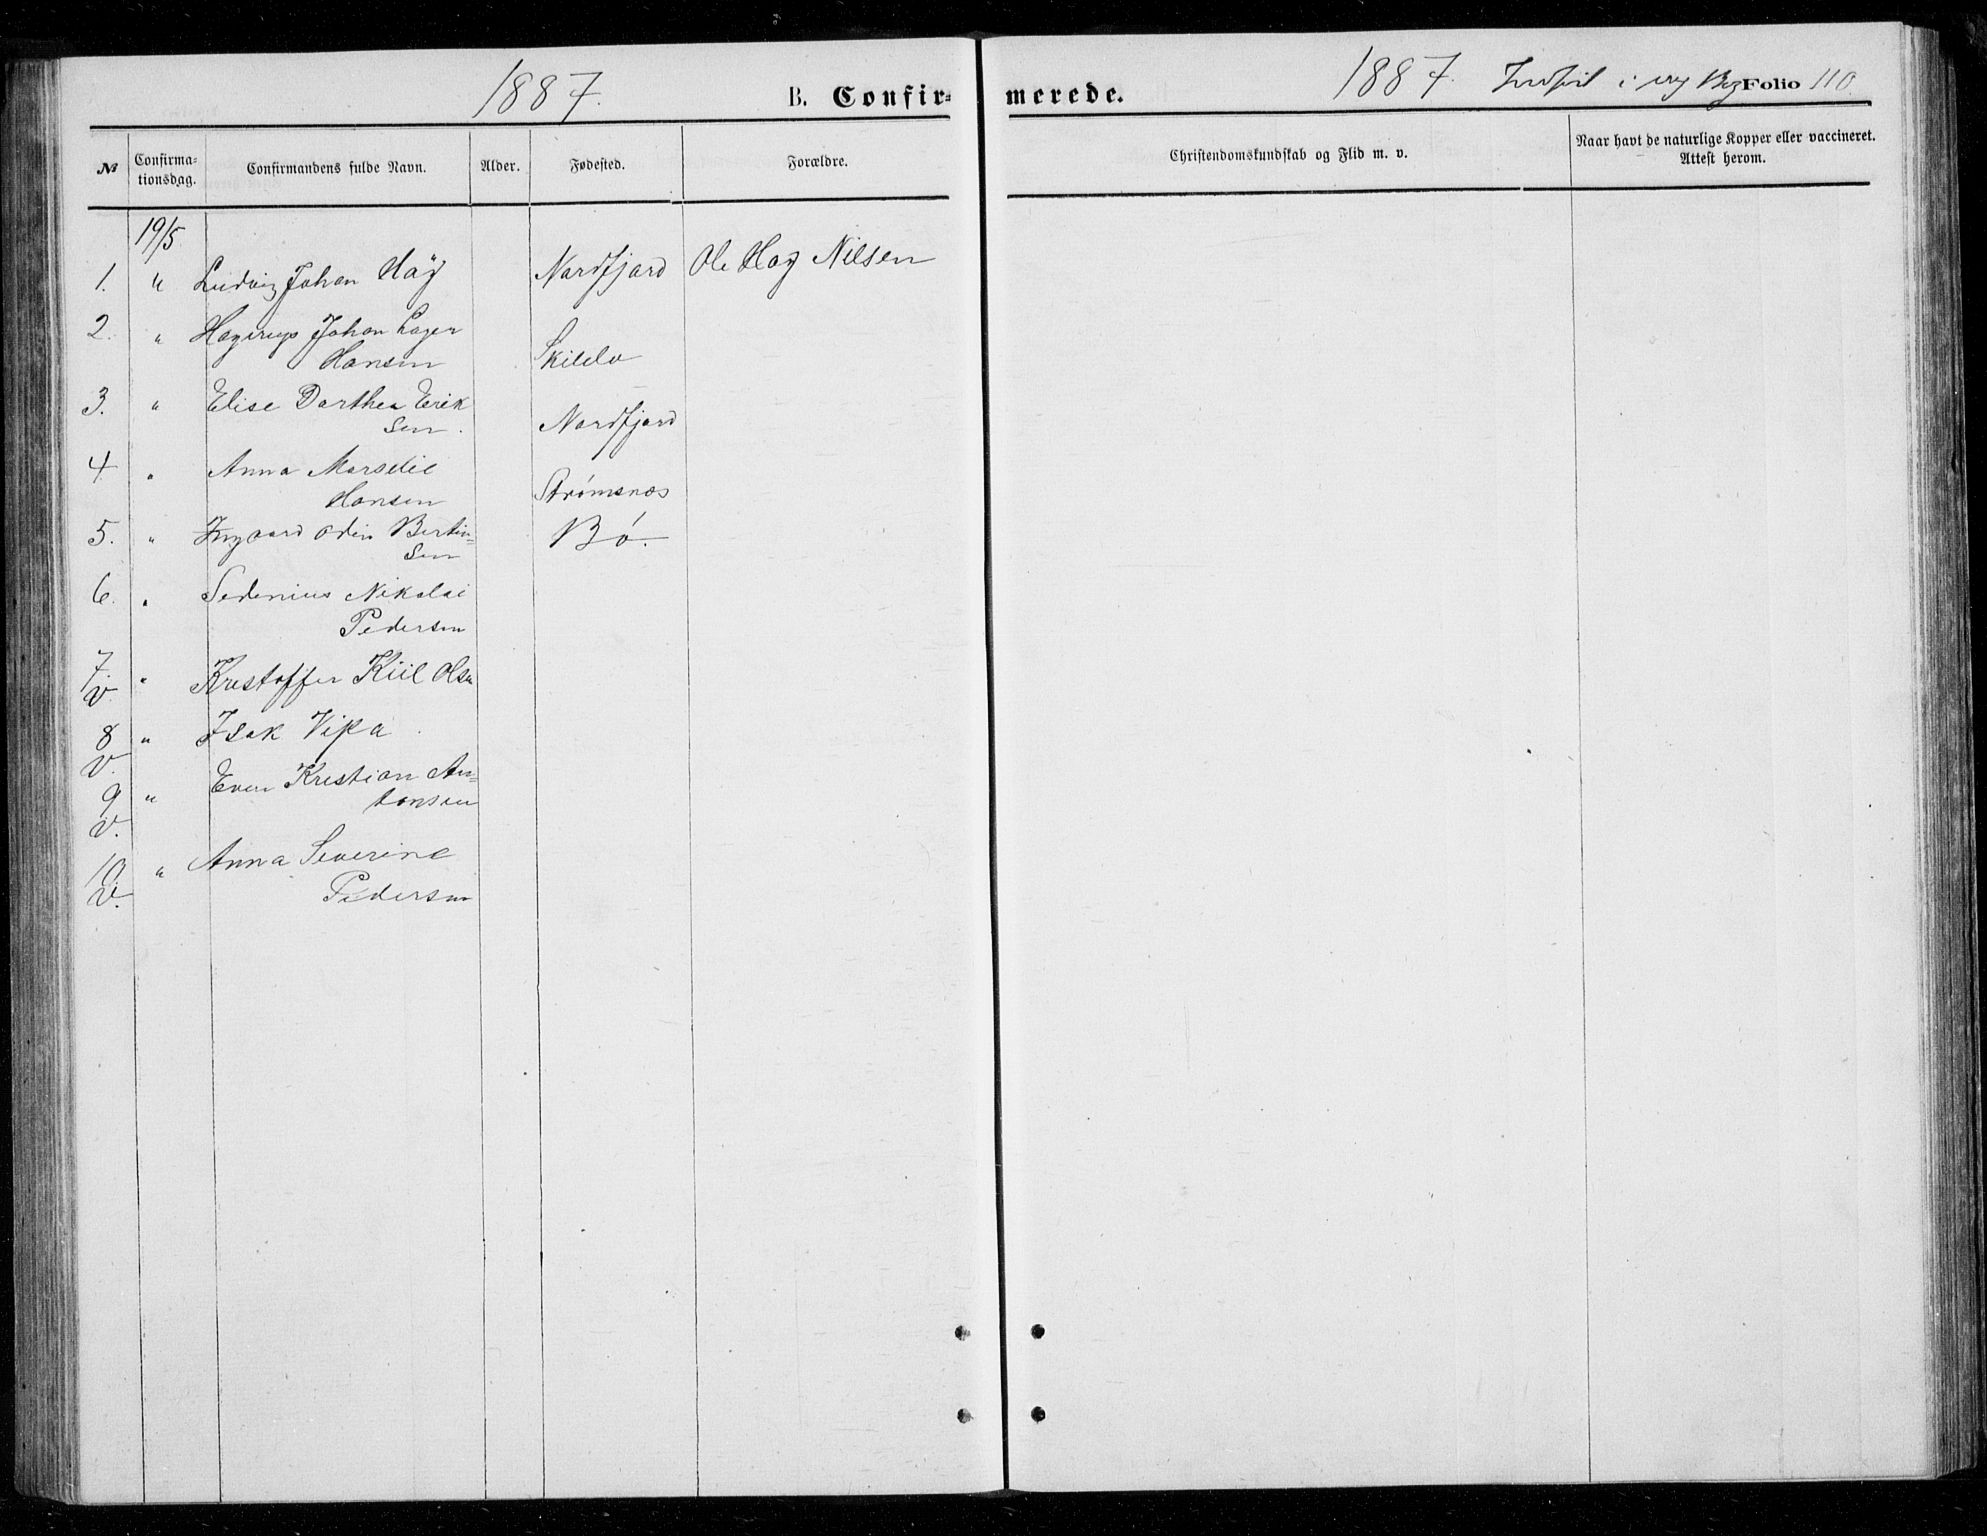 1887.
B. Confir-
merede.
1887. Indført i ny Bog Folio 110.
№
Confirma-
tionsdag.
Confirmandens fulde Navn.
Alder.
Fødested.
Forældre.
Christendomskundskab og Flid m. v.
Naar havt de naturlige Kopper eller vaccineret.
Attest herom.
19/5
1. " Ludvig Johan Høÿ Nordfjord Ole Hog Nilsen
2. " Hagerup Johan Lager
Hansen Skillo
3. " Elise Dorthea Erik
sen. Nordfjord
4 " Anna Marselie
Hansen Strømsnæs
5. " Ingvard Odin Bertin-
sen Bø.
6. " Sedenius Nikolai
Pedersen
7. " Kristoffer Kiil Olsen
V
8 " Isak Vipa
V.
9 " Even Kristian An-
tonsen
V.
10. " Anna Severine
Pedersen
V.